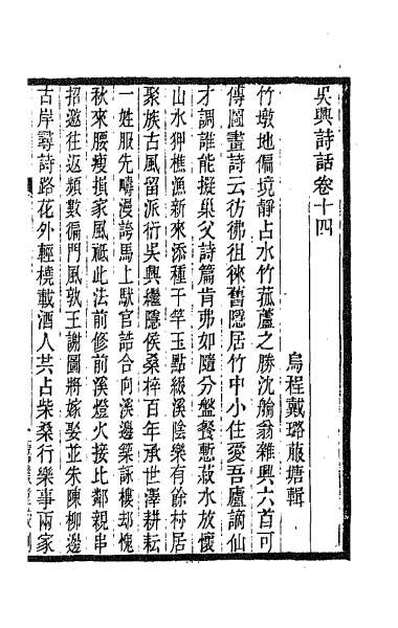 吳興詩話卷十四
烏程戴璐菔塘輯
竹墩地偏境靜占水竹菰蘆之勝沈艑翁雜興六首可
傳圖畫詩云彷彿徂徠舊隱居竹中小住愛吾廬謫仙
才調誰能擬巢父詩篇肯弗如隨分盤餐慙菽水放懷
山水狎樵漁新來添種千竿玉點綴溪陰樂有餘村居
聚族古風留派衍吳興繼隱侯桑梓百年承世澤耕耘
一姓服先疇漫誇馬上馱官誥合向溪邊築詠樓却愧
秋來腰瘦損家風祗此法前修前溪燈火接比鄰親串
招邀往返頻數徧門風敦王謝圖將嫁娶並朱陳柳邊
古岸尋詩路花外輕橈載酒人共占柴桑行樂事兩家